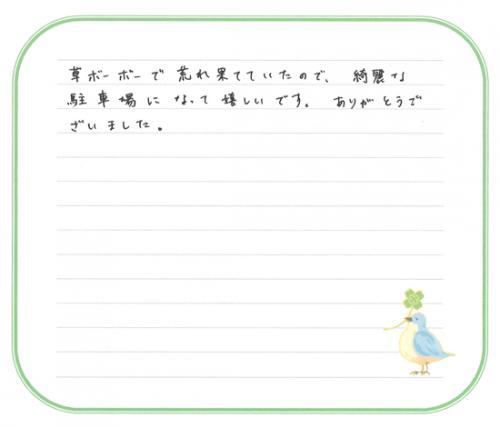 草ボーボーで荒れ果てていたので、綺麗な
駐車場になって嬉しいです。ありがとうで
ざいました。